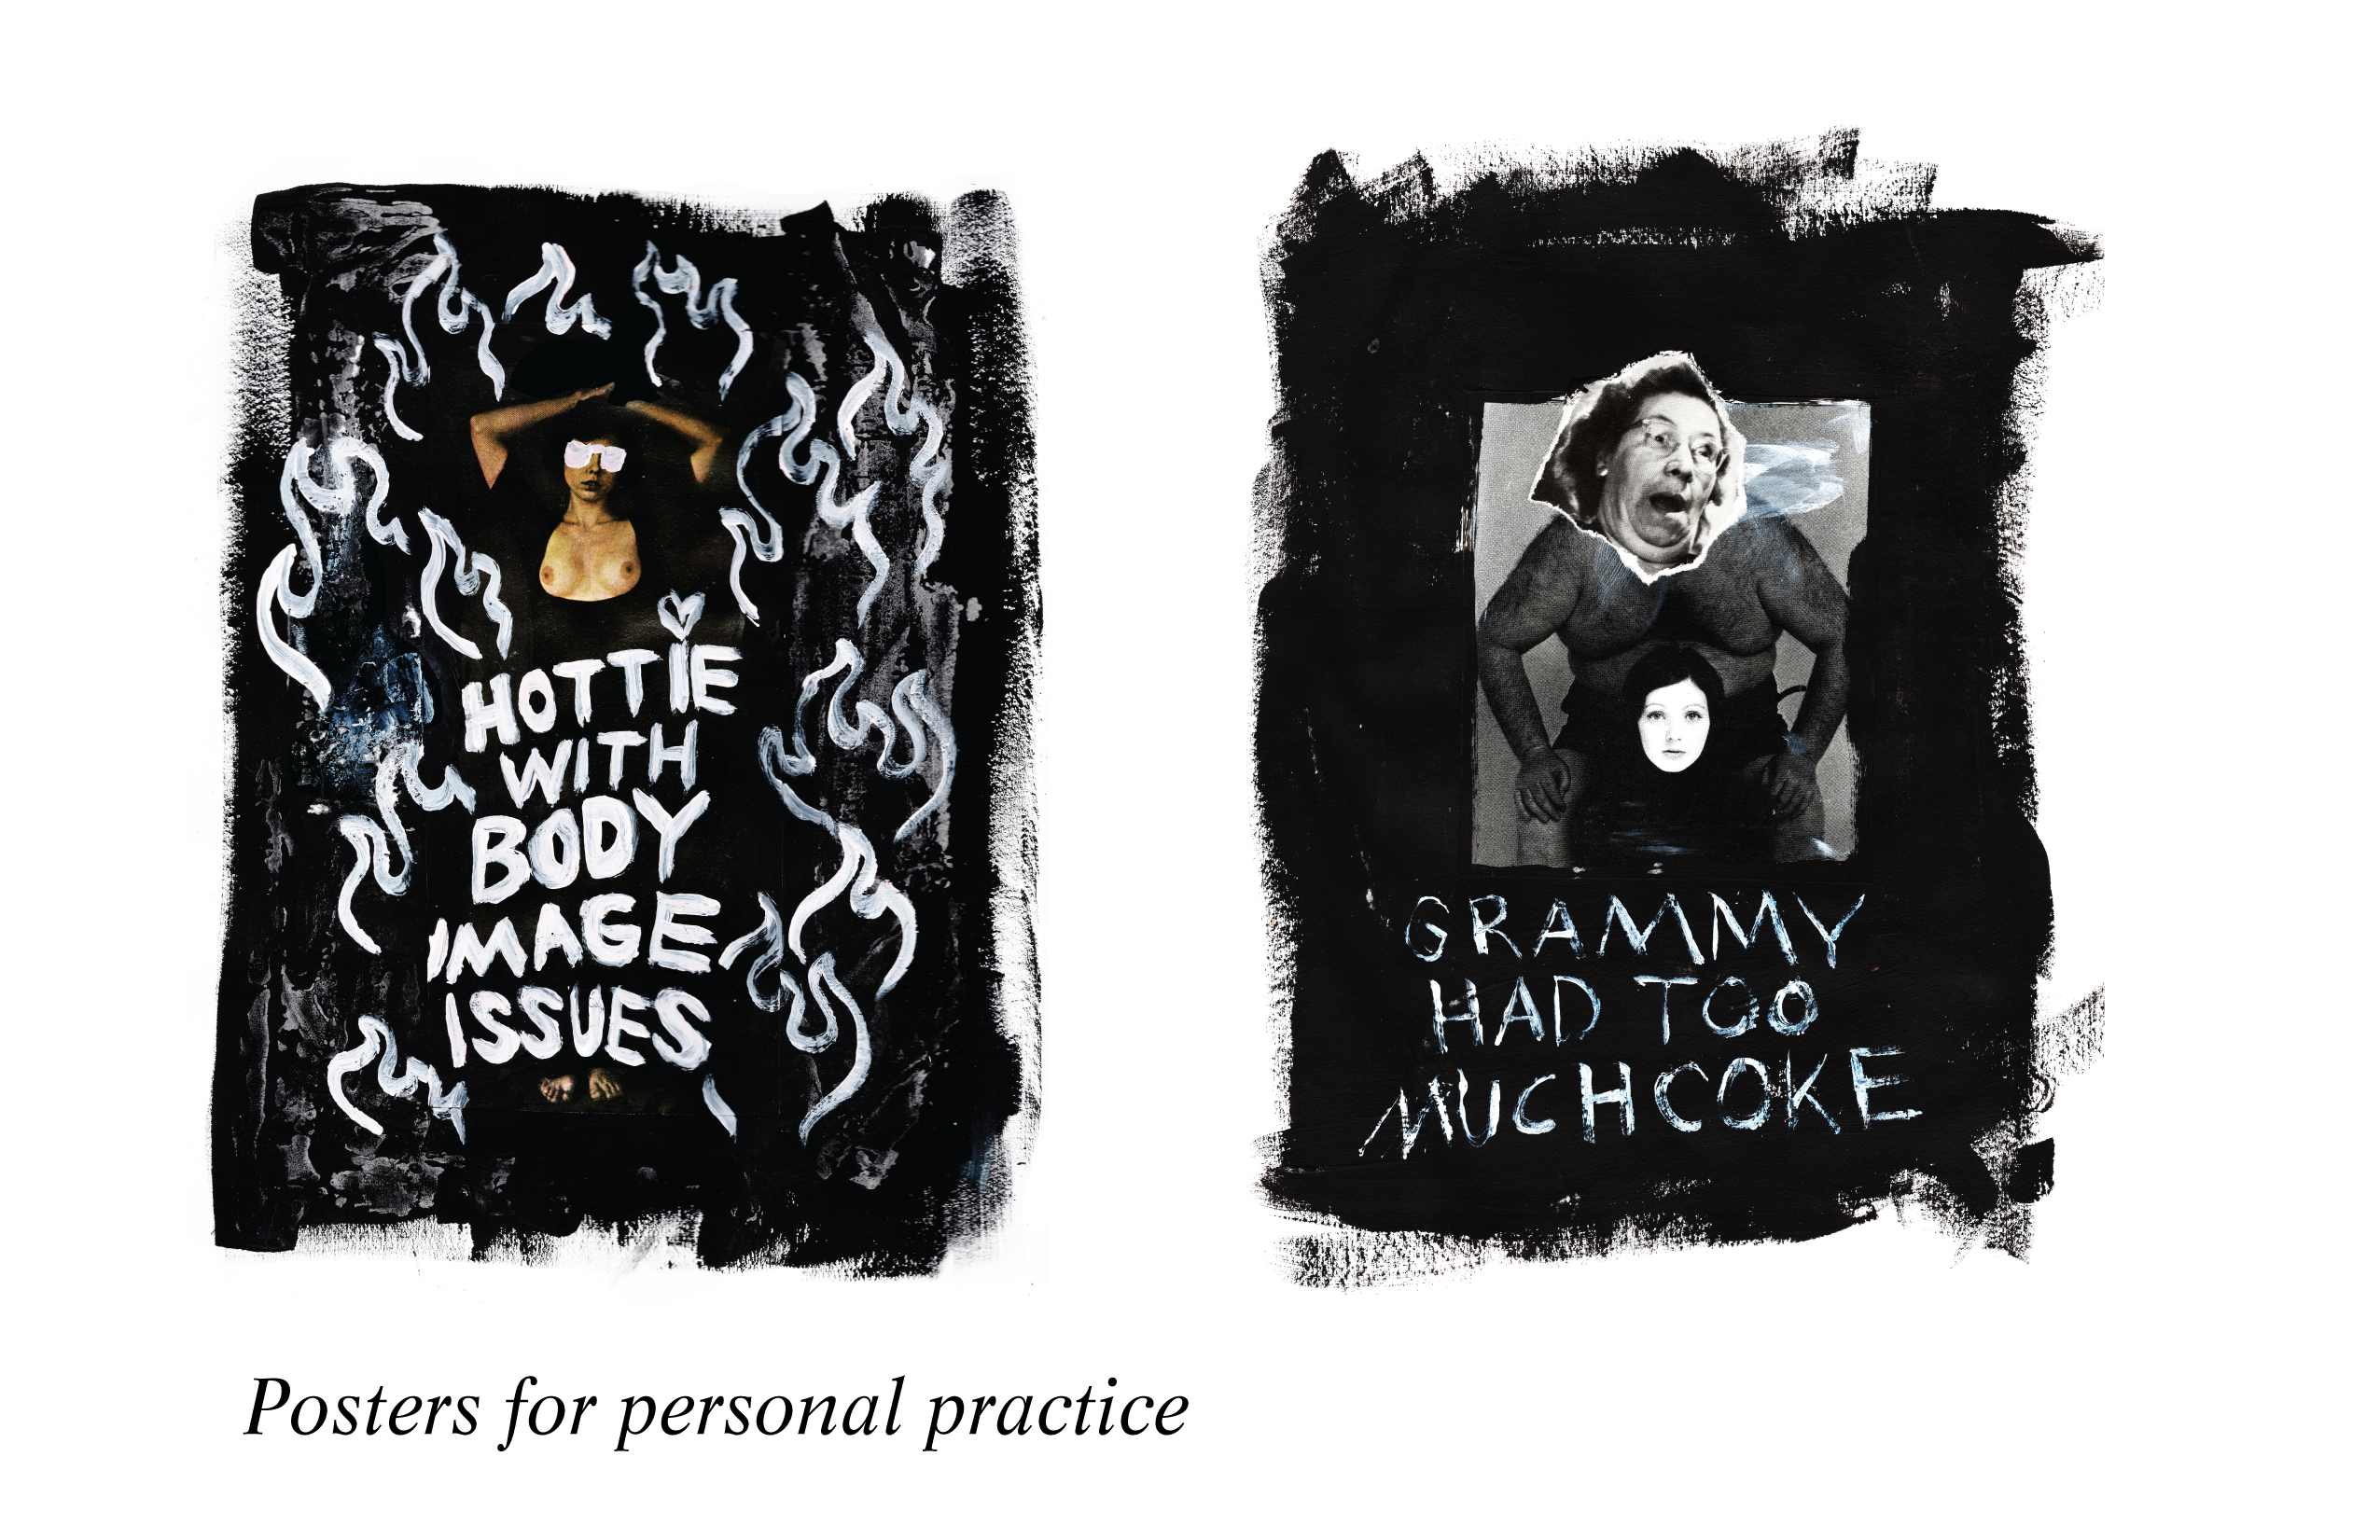 HOTTIE
WITH
BODY
IMAGE
ISSUES
GRAMMY
HAD TOO
MUCH COKE
Posters for personal practice